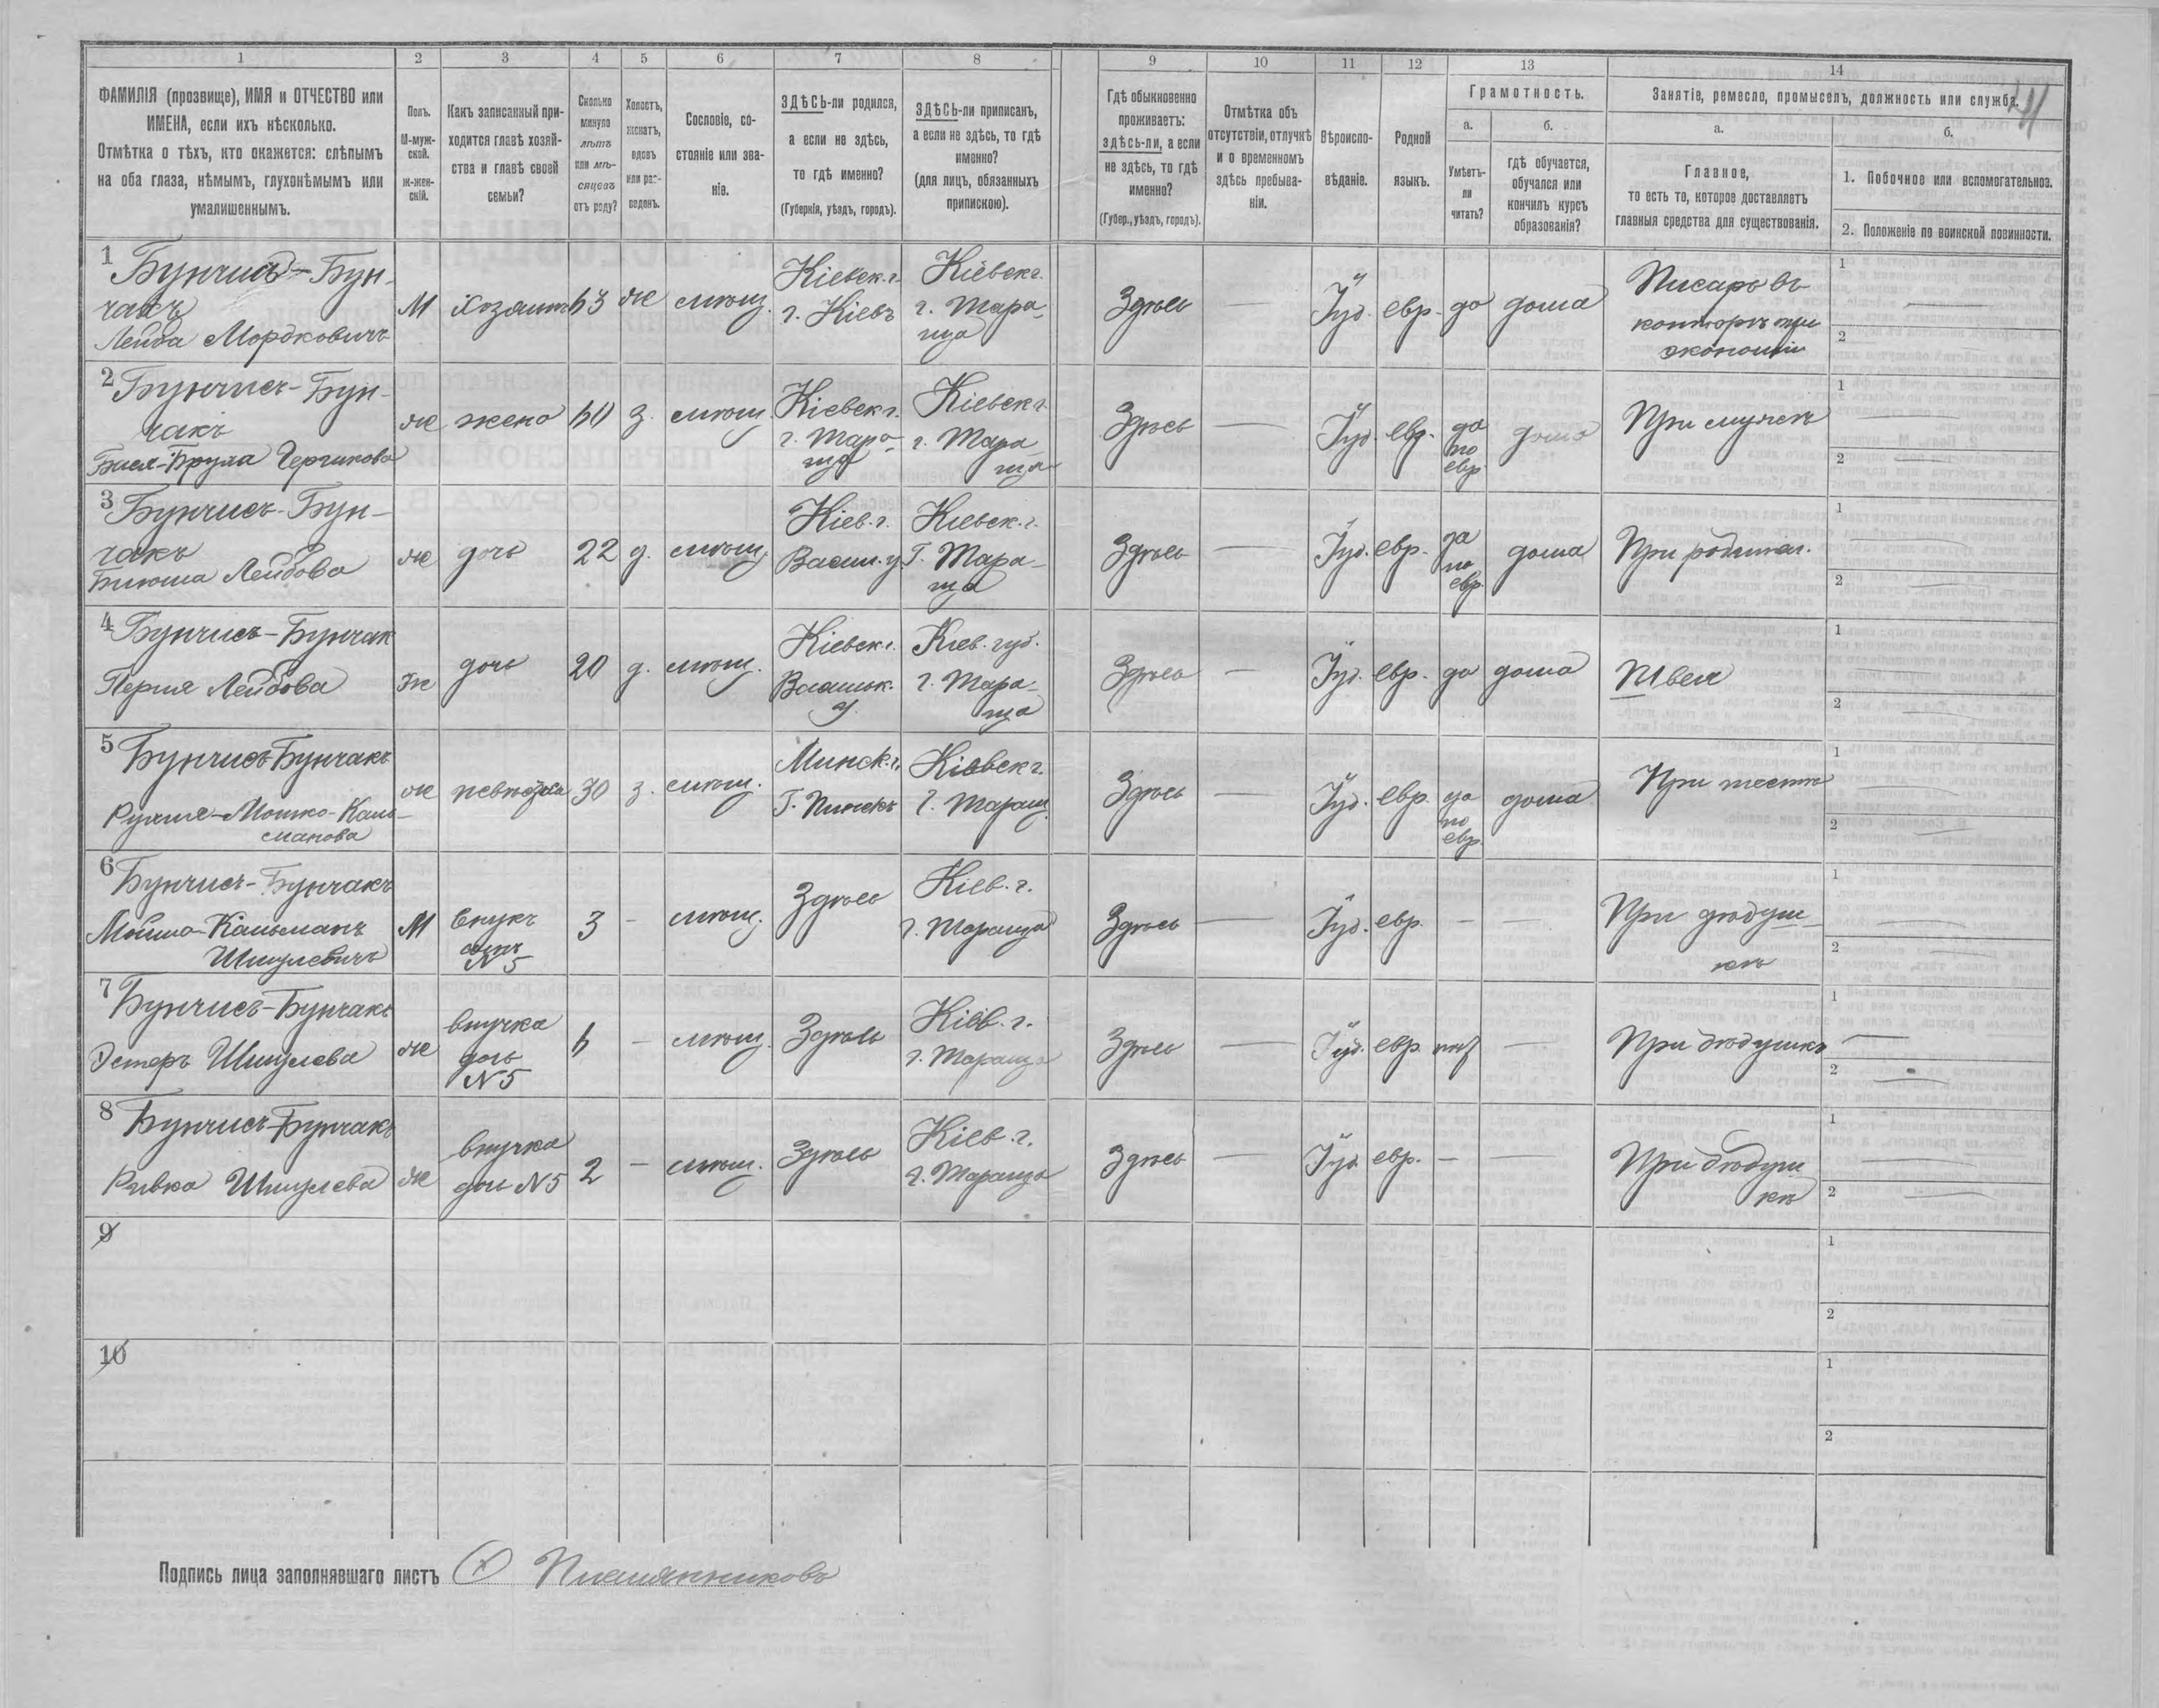 1 2 3 4 5 6 7 8 9 10 11 12 13 14
ФАМИЛІЯ (прозвище), ИМЯ и ОТЧЕСТВО или
ИМЕНА, если ихъ нѣсколько.
Отмѣтка о тѣхъ, кто окажется: слѣпымъ
на оба глаза, нѣмымъ, глухонѣмымъ или
умалишеннымъ.
Полъ.
М-муж-
ской.
Ж-жен-
скій.
Какъ записанный при-
ходится главѣ хозяй-
ства и главѣ своей
семьи?
Сколько
минуло
лѣтъ
или мѣ-
сяцевъ
отъ роду?
Холостъ,
женатъ,
вдовъ
или раз-
веденъ.
Сословіе, со-
стояніе или зва-
ніе.
ЗДѢСЬ-ли родился,
а если не здѣсь,
то гдѣ именно?
(Губернія, уѣздъ, городъ).
ЗДѢСЬ-ли приписанъ,
а если не здѣсь, то гдѣ
именно?
(для лицъ, обязанныхъ
припискою).
Гдѣ обыкновенно
проживаетъ:
здѣсь-ли, а если
не здѣсь, то гдѣ
именно?
(Губер., уѣздъ, городъ).
Отмѣтка объ
отсутствіи, отлучкѣ
и о временномъ
здѣсь пребыва-
ніи.
Вѣроиспо-
вѣданіе.
Родной
языкъ.
Грамотность.
а.
Умѣетъ-
ли
читать?
б.
гдѣ обучается,
обучался или
кончилъ курсъ
образованія?
Занятіе, ремесло, промыселъ, должность или служба.
а.
Главное,
то есть то, которое доставляетъ
главныя средства для существованія.
б.
1. Побочное или вспомогательное.
2. Положеніе по воинской повинности.
1 Бунчисъ-Бун-
чакъ
Лейба Мордковичъ
М
Хозяинъ
63
ж
мѣщ.
Кіевск. г.
г. Кіевъ
Кіевск г.
г. Тара-
ща
Здѣсь
—
Іуд.
евр.
да
дома
Писарь въ
конторѣ при
экономіи
1 —
2
2 Бунчисъ-Бун-
чакъ
ж
жена
60
з.
мѣщ.
Кіевск г.
г. Тара-
ща
Кіевск г.
г. Тара-
ща
Здѣсь
—
Іуд.
евр.
да
по
евр.
дома
При мужѣ
1 —
2 —
3 Бунчисъ-Бун-
чакъ
Лейбова
ж
дочь
22
д.
мѣщ.
Кіев. г.
Васил. у.
Кіевск. г.
Г. Тара-
ща
Здѣсь
—
Іуд.
евр.
да
по
евр.
дома
При родител.
1 —
2 —
4 Бунчисъ-Бунчак
Перля Лейбова
Ж
дочь
20
д.
мѣщ.
Кіевск. г.
Васильк.
у.
Кіев. губ.
г. Тара-
ща
Здѣсь
—
Іуд.
евр.
да
дома
Швея
1 —
2 —
5 Бунчисъ-Бунчакъ
ж
невѣстка
30
з.
мѣщ.
Минск. г.
Г. Пинскъ
Кіевск г.
Г. Таращ.
Здѣсь
—
Іуд.
евр.
да
по
евр.
дома
При тестѣ
1 —
2 —
6 Бунчисъ-Бунчакъ
Мойше-Кальманъ
Шмулевичъ
М
Внукъ
сынъ
N 5
3
-
мѣщ.
Здѣсь
Кіев. г.
г. Тараща
Здѣсь
—
Іуд.
евр.
—
—
При дѣдуш-
кѣ
1 —
2 —
7 Бунчисъ-Бунчакъ
Эстеръ Шмулева
ж
внучка
дочь
N 5
6
—
мѣщ.
Здѣсь
Кіев. г.
г. Тараща
Здѣсь
—
Іуд.
евр.
нѣт
—
При дѣдушкѣ
1 —
2 —
8 Бунчисъ-Бунчакъ
Ривка Шмулева
ж
внучка
дочь N 5
2
—
мѣщ.
Здѣсь
Кіев. г.
г. Тараща
Здѣсь
—
Іуд.
евр.
—
—
При дѣдуш-
кѣ
1 —
2 —
9
1
2
10
1
2
Подпись лица заполнявшаго листъ